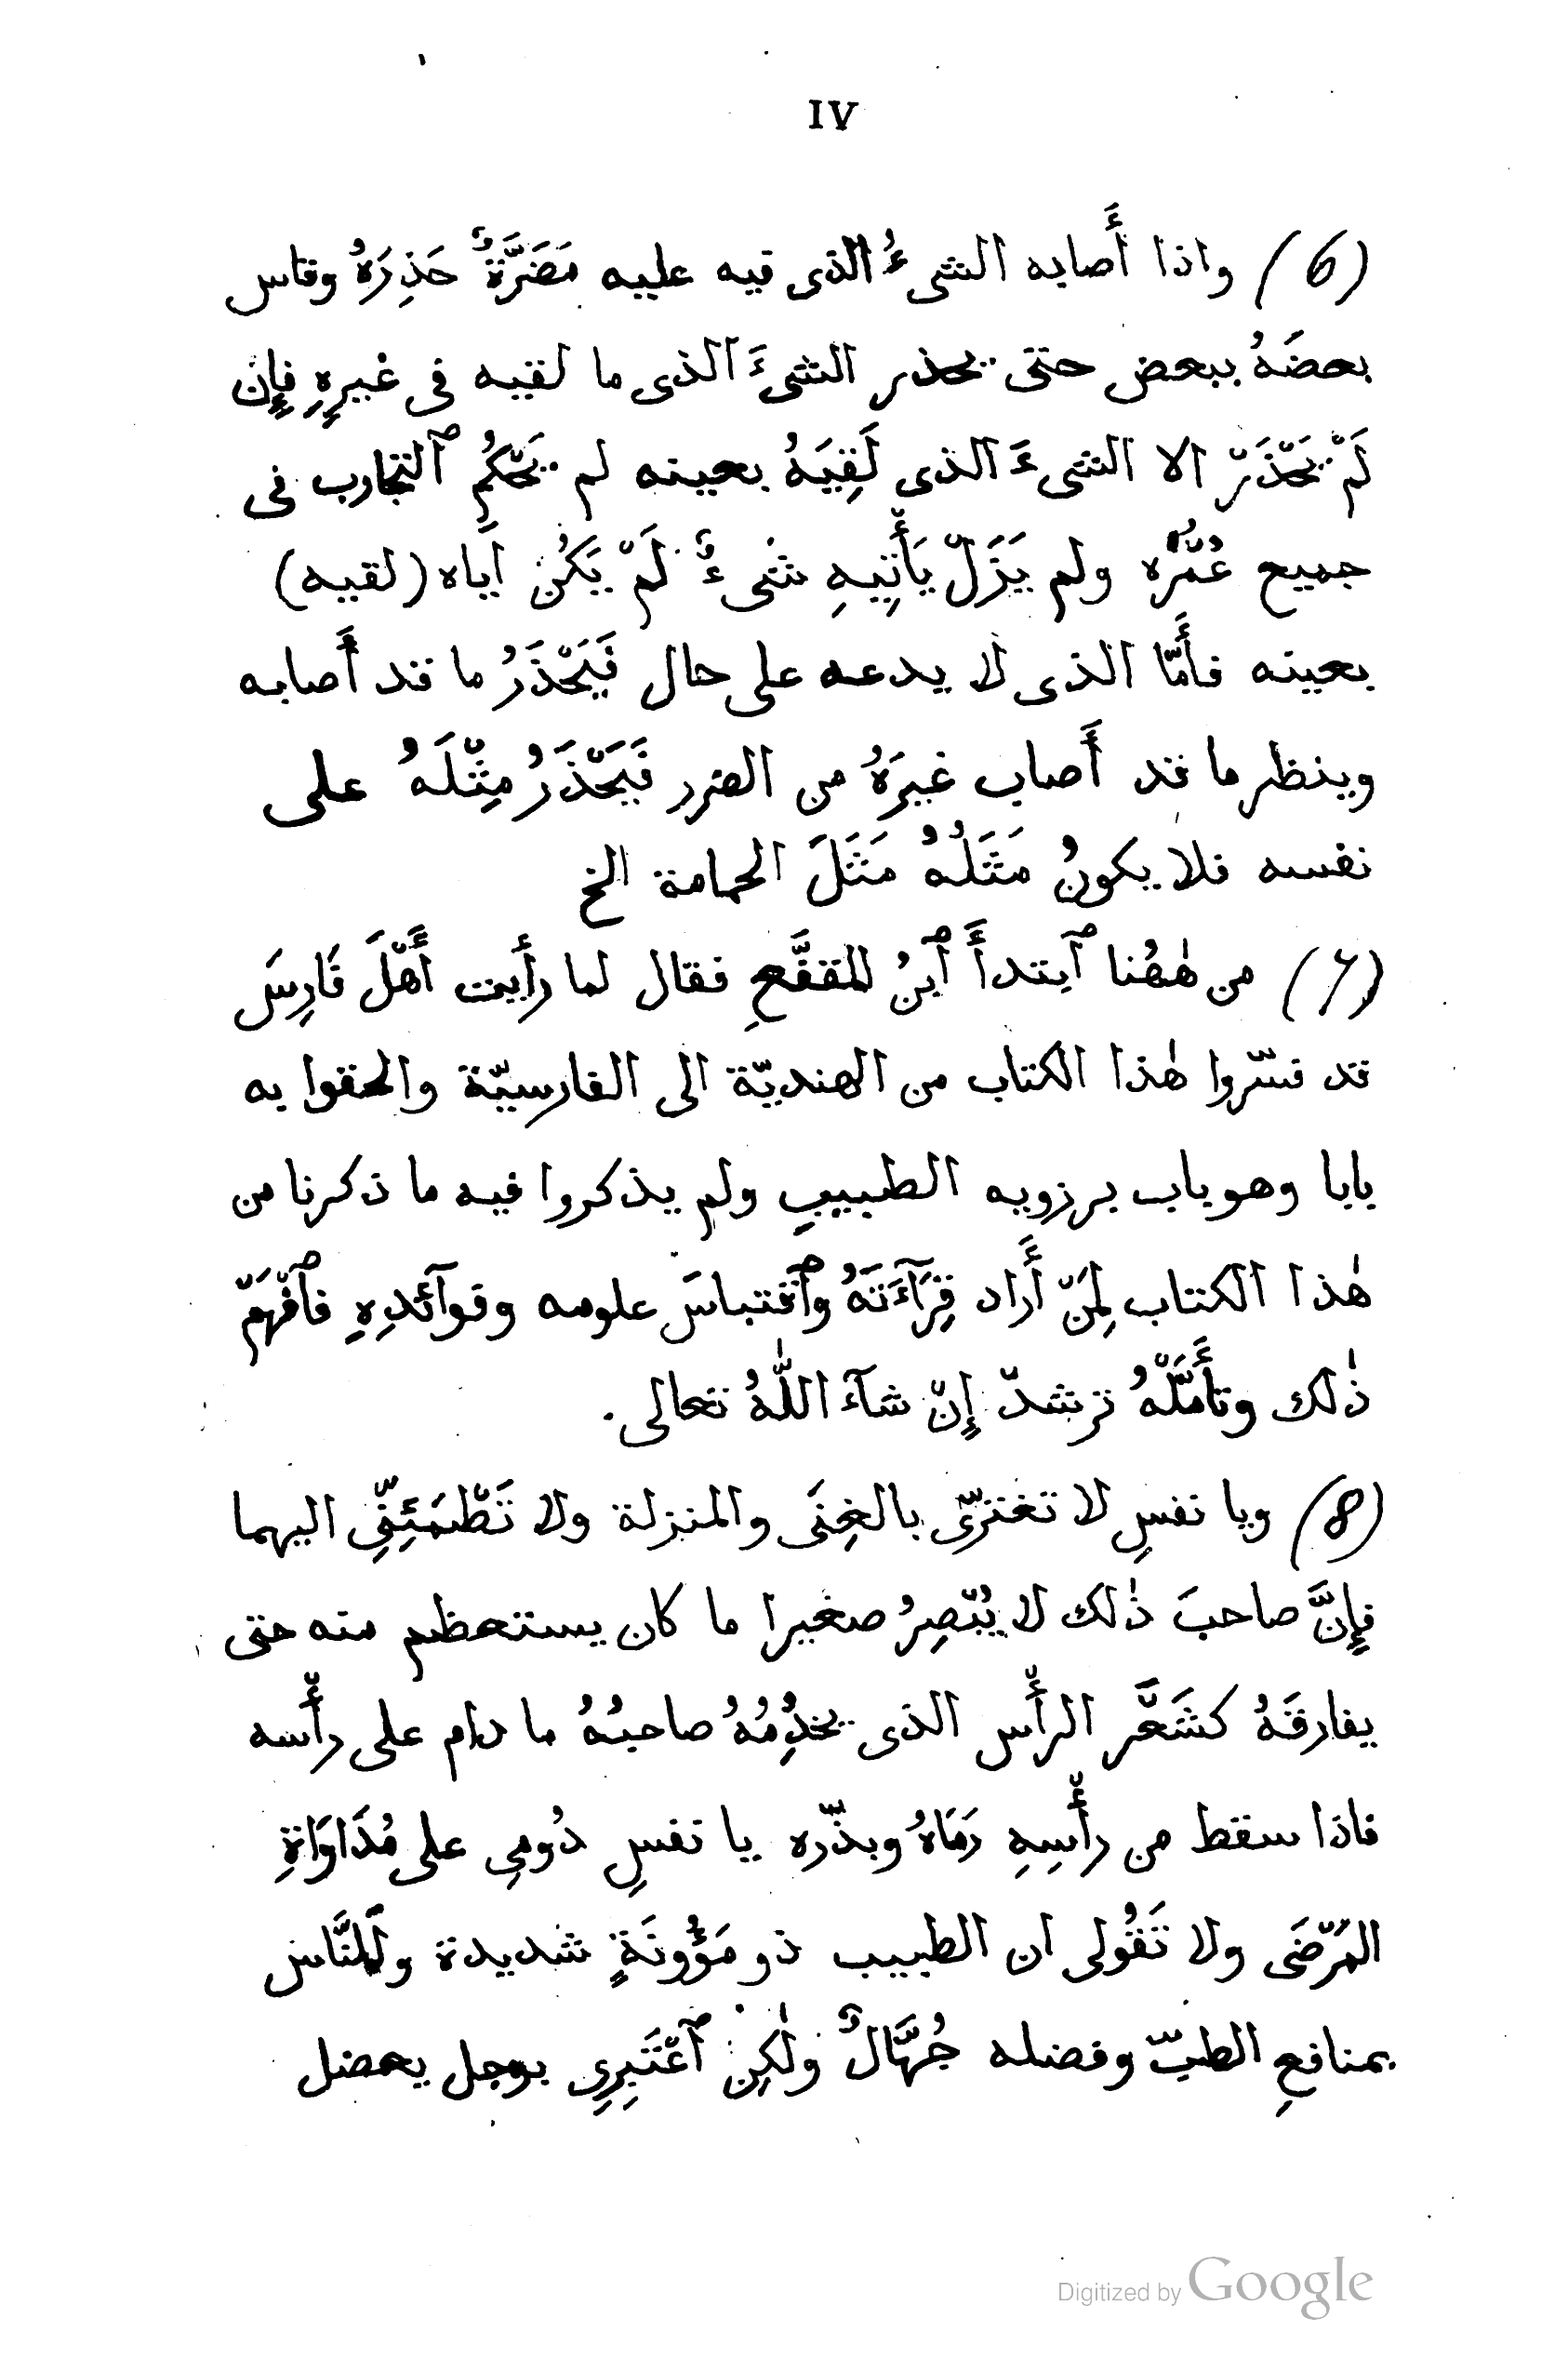 IV
(6) واذا أَصابه الشىءُ الذى فيه عليه مَضَرَّةٌ حَذِرَهُ وقاس
بعضَهُ ببعض حتى يحذر الشىءَ الذى ما لقيه فى غيرِهِ فإِن
لَمْ يَحْذَرْ الا الشىءَ الذى لَقِيَهُ بعينه لم يَحْكُمِ ٱلتجارب فى
جميع عُمْرُه ولم يَزَلْ يَأْتِيهِ شىءٌ لَمْ يَكُنْ اياه (لقيه)
بعينه فأَمّا الذى لا يدعه على حال فَيَحْذَرُ ما قد أَصابه
وينظر ما قد أَصاب غيرَهُ من الضرر فَيَحْذَرُ مِثْلَهُ على
نفسه فلا يكونُ مَثَلُهُ مَثَلَ الحمامة الخ
(7) من هٰهُنا ٱبتدأَ ٱبنُ المقفَّعِ فقال لما رأَيت أَهْلَ فَارِسَ
قد فسّروا هٰذا الكتاب من الهنديّة الى الفارسيّة والحقوا به
بابا وهو باب برزويه الطبيبِ ولم يذكروا فيه ما ذكرنا من
هٰذا الكتاب لِمَنْ أَراد قِرَآءَتَهُ وٱقتباسَ علومه وفوآئدِهِ فٱفْهَمْ
ذٰلك وتأَمَّلْهُ ترشدْ إِنْ شآءَ اللّٰهُ تعالى.
(8) ويا نفسِ لا تغترّى بالغِنَى والمنزلة ولا تَطْمَئِنِّى اليهما
فإِنَّ صاحبَ ذٰلك لا يُبْصِرُ صغيرا ما كان يستعظم منه حتى
يفارقَهُ كشَعَْرِ الرأْس الذى يخدِمُهُ صاحبُهُ ما دام على رأْسه
فاذا سقط من رأْسِهِ رَمَاهُ وبذّره يا نفسِ دُومِى على مُدَاوَاةِ
المَرْضَى ولا تَقُولى ان الطبيب ذو مَؤُونَةٍ شديدة وللنَّاس
بمنافعِ الطبّ وفضله جُهَّالٌ ولٰكِن ٱعْتَبِرِى برجل يعضل
Digitized by Google